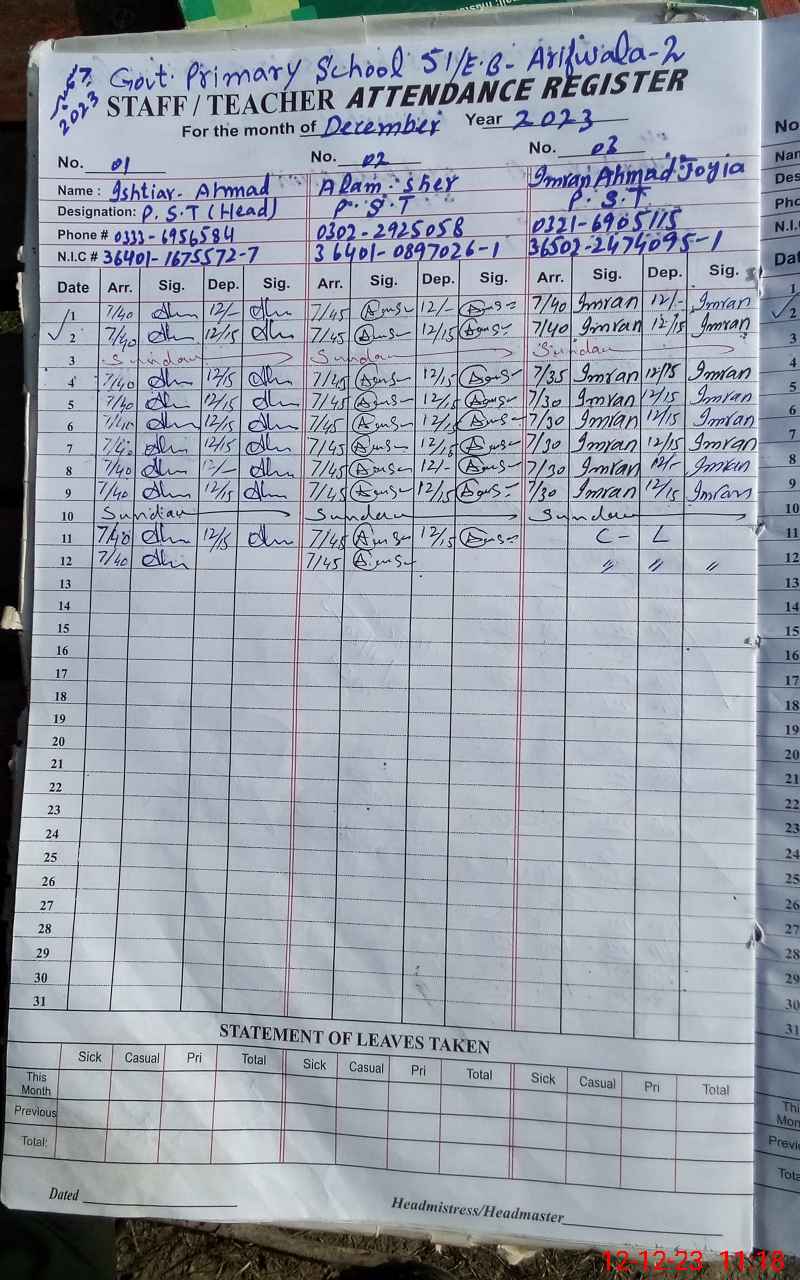 Govt. Primary School 51/E.B- Arifwala-2
2023
STAFF / TEACHER ATTENDANCE REGISTER
For the month of December Year 2023
No. 01 No. 02 No. 03
Name : Ishtiar. Ahmad Alam. Sher Imran Ahmad Joyia
Designation: P. S. T (Head) P. S. T P. S. T
Phone # 0333-6956584 0302-2925058 0321-6905115
N.I.C # 36401-1675572-7 36401-0897026-1 36502-2474095-1
Date Arr. Sig. Dep. Sig. Arr. Sig. Dep. Sig. Arr. Sig. Dep. Sig.
1 7/40 12/- 7/45 12/- 7/40 Imran 12/- Imran
2 7/40 12/15 7/45 12/15 7/40 Imran 12/15 Imran
3 Sunday Sunday Sunday
4 7/40 12/15 7/45 12/15 7/35 Imran 12/15 Imran
5 7/40 12/15 7/45 12/15 7/30 Imran 12/15 Imran
6 7/40 12/15 7/45 12/15 7/30 Imran 12/15 Imran
7 7/40 12/15 7/45 12/15 7/30 Imran 12/15 Imran
8 7/40 12/- 7/45 12/- 7/30 Imran 12/- Imran
9 7/40 12/15 7/45 12/15 7/30 Imran 12/15 Imran
10 Sunday Sunday Sunday
11 7/40 12/15 7/45 12/15 C - L
12 7/40 7/45 〃 〃 〃
13
14
15
16
17
18
19
20
21
22
23
24
25
26
27
28
29
30
31
STATEMENT OF LEAVES TAKEN
Sick Casual Pri Total Sick Casual Pri Total Sick Casual Pri Total
This Month
Previous
Total:
Dated
Headmistress/Headmaster
12-12-23 11:18